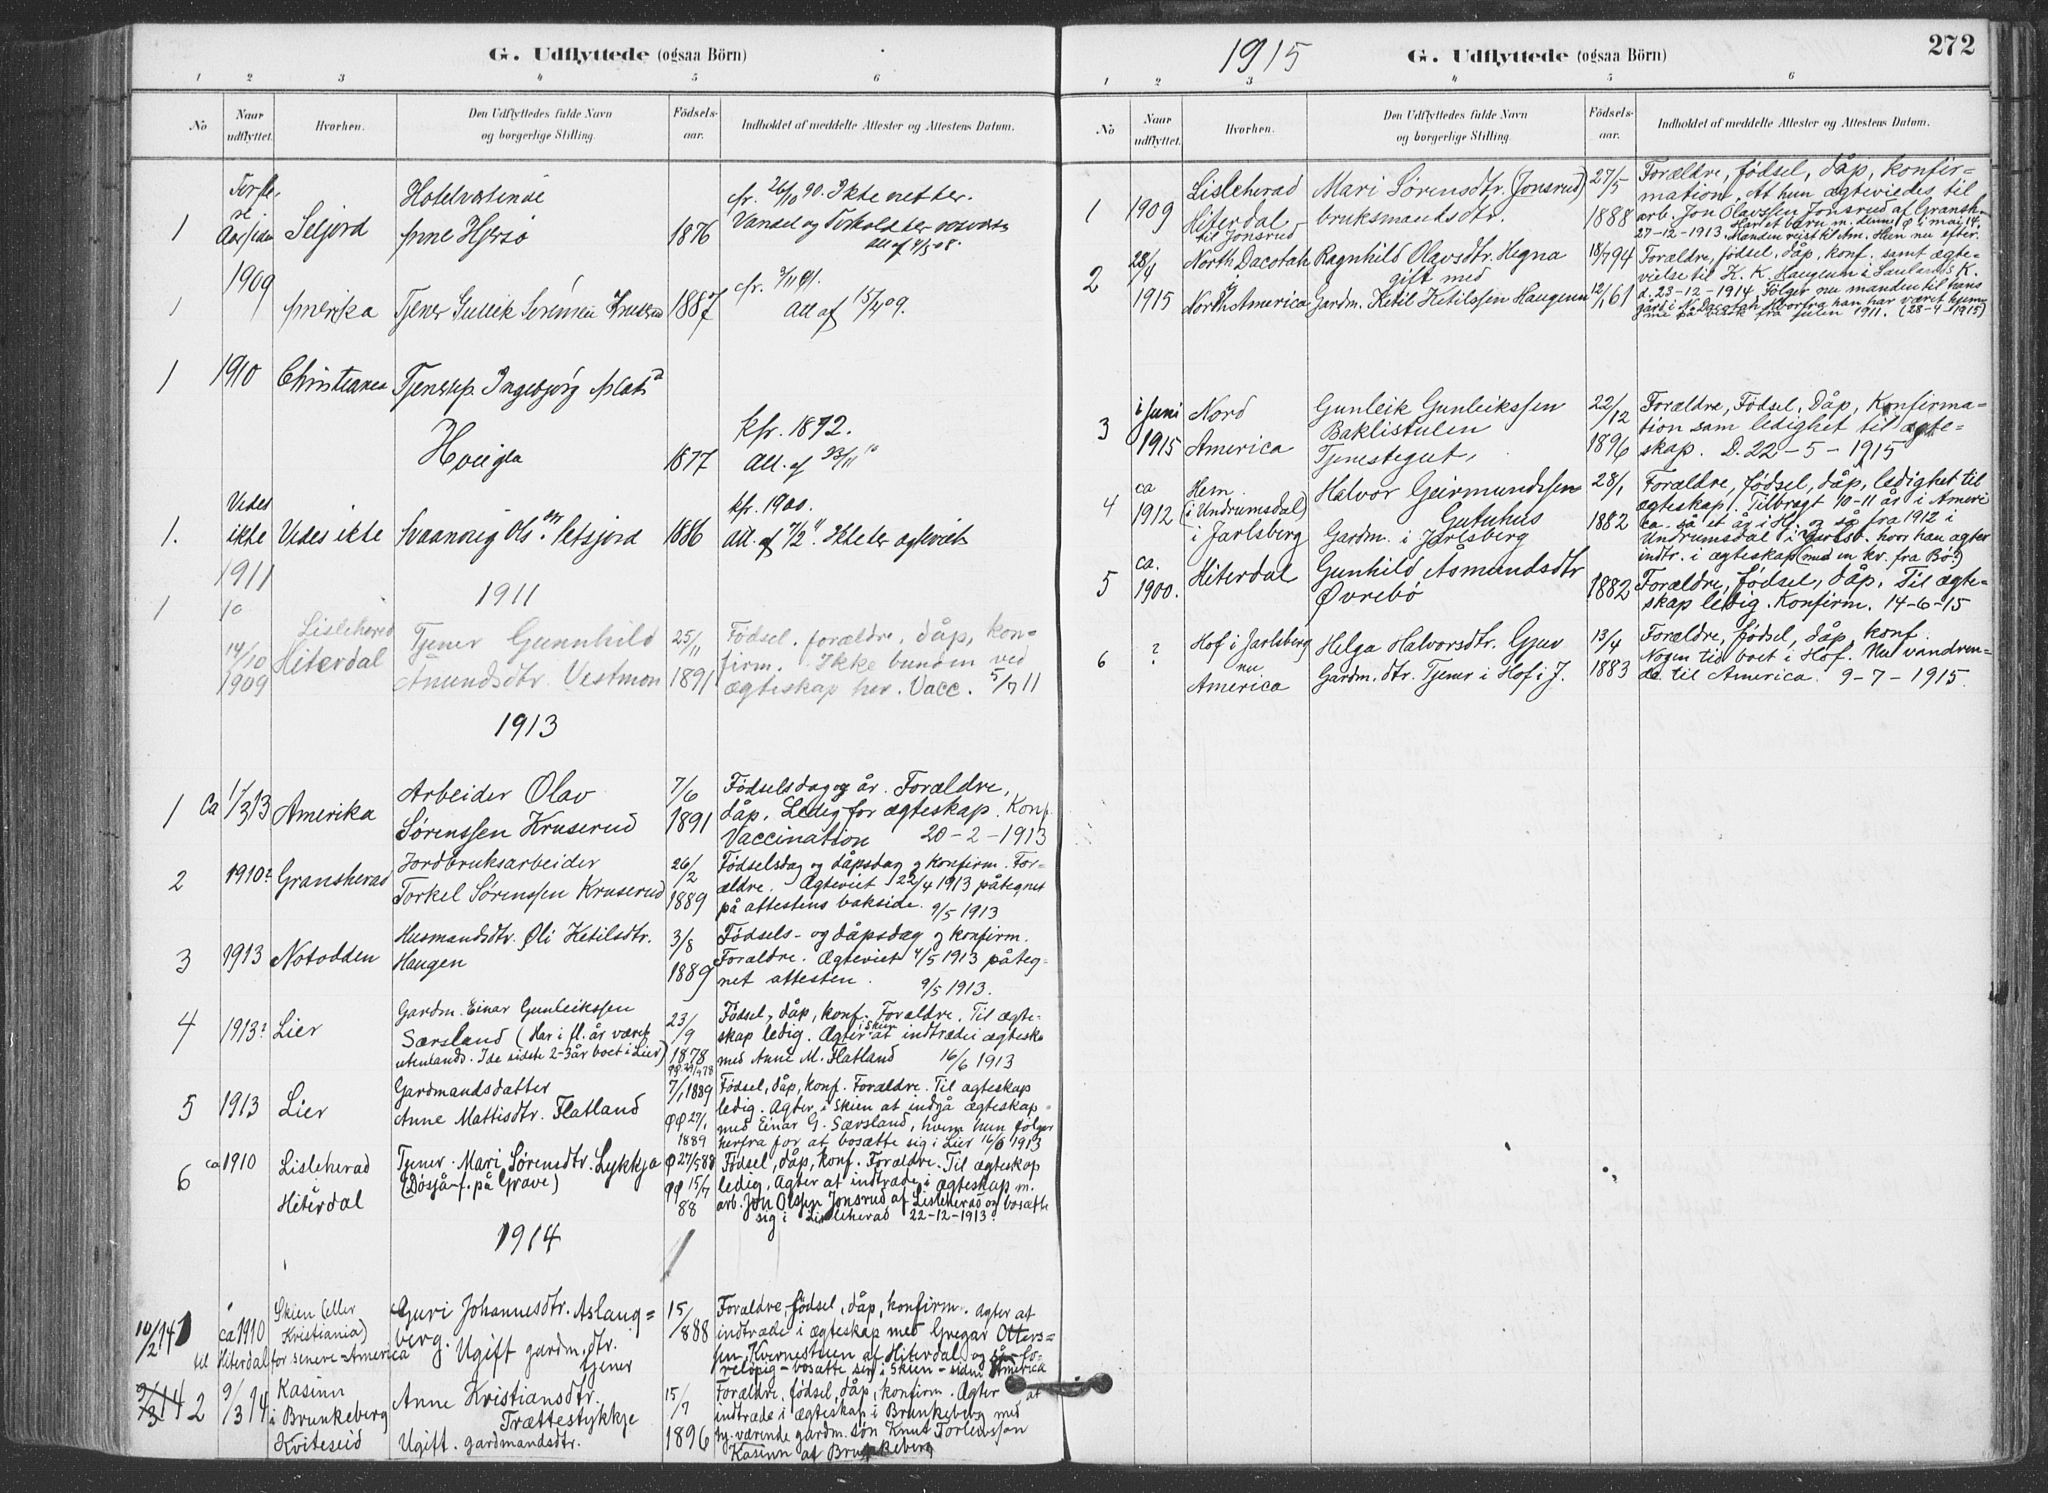 G. Udflyttede (ogsaa Börn)
1 2 3 4 5 6
No
Naar udflyttet.
Hvorhen.
Den Udflyttedes fulde Navn og borgerlige Stilling.
Födsels-aar.
Indholdet af meddelte Attester og Attestens Datum.
1
Seljord
Hotelværtinde
Anne Hjersø
1876
fr. 26/10 90. Ikke
1909
1
Amerika
Tjener Gullik Sørensen Kruserud
1887
Att af 15/4 09.
1
1910
Christiania
Tjenestep. Ingebjørg
Hveigla
1877
kfr. 1892.
Att. af 23/11 10
1.
Vides
ikke
Vides ikke
1886
kfr. 1900.
1911
1911
1
14/10
1909
Lisleherad
Hiterdal
Tjener Gunnhild
Ånundsdtr. Vestmon
25/11
1891
Fødsel. forældre. dåp, kon-
firm. Ikke bunden ved
ægteskap her. Vacc. 5/7 11
1913
1
ca 1/3 13
Amerika
Arbeider Olav
Sørenssen Kruserud
7/6
1891
Fødselsdag og år. Forældre,
dåp. Ledig for ægteskap. Konf.
Vaccination 20-2-1913
2
1910?
Gransherad
Jordbruksarbeider
Torkel Sørenssen Kruserud
26/2
1889
Fødselsdag og dåpsdag og konfirm. For-
ældre. Ægteviet 22/4 1913 påtegnet
på attestens bakside. 9/5 1913
3
1913
Notodden
Husmandsdtr. Øli Ketilsdtr.
Haugen
3/8
1889
Fødsels- og dåpsdag og konfirm.
Forældre. Ægteviet 4/5 1913 påteg-
net attesten. 9/5 1913.
4
1913?
Lier
Gardm. Einar Gunleikssen
Særsland (Har i fl. år været
utenlands. I de sidste 2-3 år boet i Lier)
23/9
1878
Fødsel, dåp, konf. Forældre. Til ægte-
skap ledig. Agter i Skien at indtræde i ægteska
med Anne M. Flatland 16/6 1913
5
1913
Lier
Gardmandsdatter
Anne Mattisdtr. Flatland
7/1 1889
1889
Fødsel, dåp, konf. Forældre. Til ægteskap
ledig. Agter i Skien at indgå ægteskap
med Einar G. Særsland, hvem hun følger
herfra for at bosætte sig i Lier 16/6 1913
6
ca 1910
Lisleherad
Hiterdal
Tjener. Mari Sørensdtr. Lykkja
(Døsjå-f. på Grave)
ø 27/5 88
øø 15/7
88
Fødsel, dåp, konf. Forældre. Til ægteskap
ledig. Agter at indtræde i ægteskap m.
arb. Jon Olssen Jonsrud af Lisleherad og bosætte
sig i Lisleherad 22-12-1913.
1914
10/2 14 1
ca 1910
til Hiterdal
Skien (eller
Kristiania)
for senere-Amerika
Guri Johannesdtr. Aslaug-
berg. Ugift gardm. dtr.
tjener
15/
888
Forældre, fødsel, dåp, konfirm. Agter at
indtræde i ægteskap med Gregar Otters-
sen Kvernestuen af Hiterdal og så-fo-
reløpig-bosætte sig i Skien-siden Amerika
9/3 14 2
9/3 14
Kasinn
i Brunkeberg
Kviteseid
Anne Kristiansdtr.
Trættestykkje
Ugift. gardmandsdtr.
15/7
1896
Forældre, fødsel, dåp, konfirm. Agter at
indtræde i ægteskap i Brunkeberg med
værende gardm. søn Knut Torleivssøn
Kasinn af Brunkeberg
1915
G. Udflyttede (ogsaa Börn)
272
1 2 3 4 5 6
No
Naar udflyttet.
Hvorhen.
Den Udflyttedes fulde Navn og borgerlige Stilling.
Födsels-aar.
Indholdet af meddelte Attester og Attestens Datum.
1
1909
Lisleherad
Hiterdal
til Jonsrud
Mari Sørensdtr. (Jonsrud)
bruksmandsdtr.
27/5
1888
Forældre, fødsel, dåp, konfir-
mation. At hun ægteviedes til
arb. Jon Olavssen Jonsrud af Gransh.
27-12-1913. Manden reist til Am. Hun nu efter.
2
28/4
1915
North Dacotah
North America
Ragnhild Olavsdtr. Hegna
gift med
Gardm. Ketil Ketilssen Haugenn
18/7 94
12/1 61
Forældre, fødsel, dåp, konf. samt ægte-
vielse til K. K. Haugenn i Saulands K.
d. 23-12-1914. Følger nu manden til hans
gard i N. Dacotah, hvorfra han har været hjem-
me på besøk fra julen 1911. (28-4-1915)
3
i Juni
1915
Nord
America
Gunleik Gunleikssen
Baklistulen
Tjenestegut,
22/12
1896
Forældre, Fødsel, Dåp, Konfirma-
tion som ledighet til ægte-
skap. D. 22-5-1915
4
ca
1912
Hem
(i Undrumsdal)
i Jarlsberg
Halvor Geirmundssen
Gutuhus
Gardm. i Jarlsberg
28/1
1882
Forældre, fødsel, dåp, ledighet til
ægteskap. Tilbragt 10-11 år i Ameri
ca. så et år i H. og så fra 1912 i
Undrumsdal i Jarlsb. hvor han agter
indtr. i ægteskap (med en kv. fra Bø?)
5
ca.
1900.
Hiterdal
Gunhild Asmundsdtr
Øvrebø
1882
Forældre, fødsel, dåp, Til ægte-
skap ledig. Konfirm. 14-6-15
6
?
Hof i Jarlsberg
nu
America
Helga Halvorsdtr. Gjuv
Gardm. dtr. Tjener i Hof i J.
13/4
1883
Forældre, fødsel, dåp, konf.
Nogen tid boet i Hof. Nu vandren-
de til America. 9-7-1915.